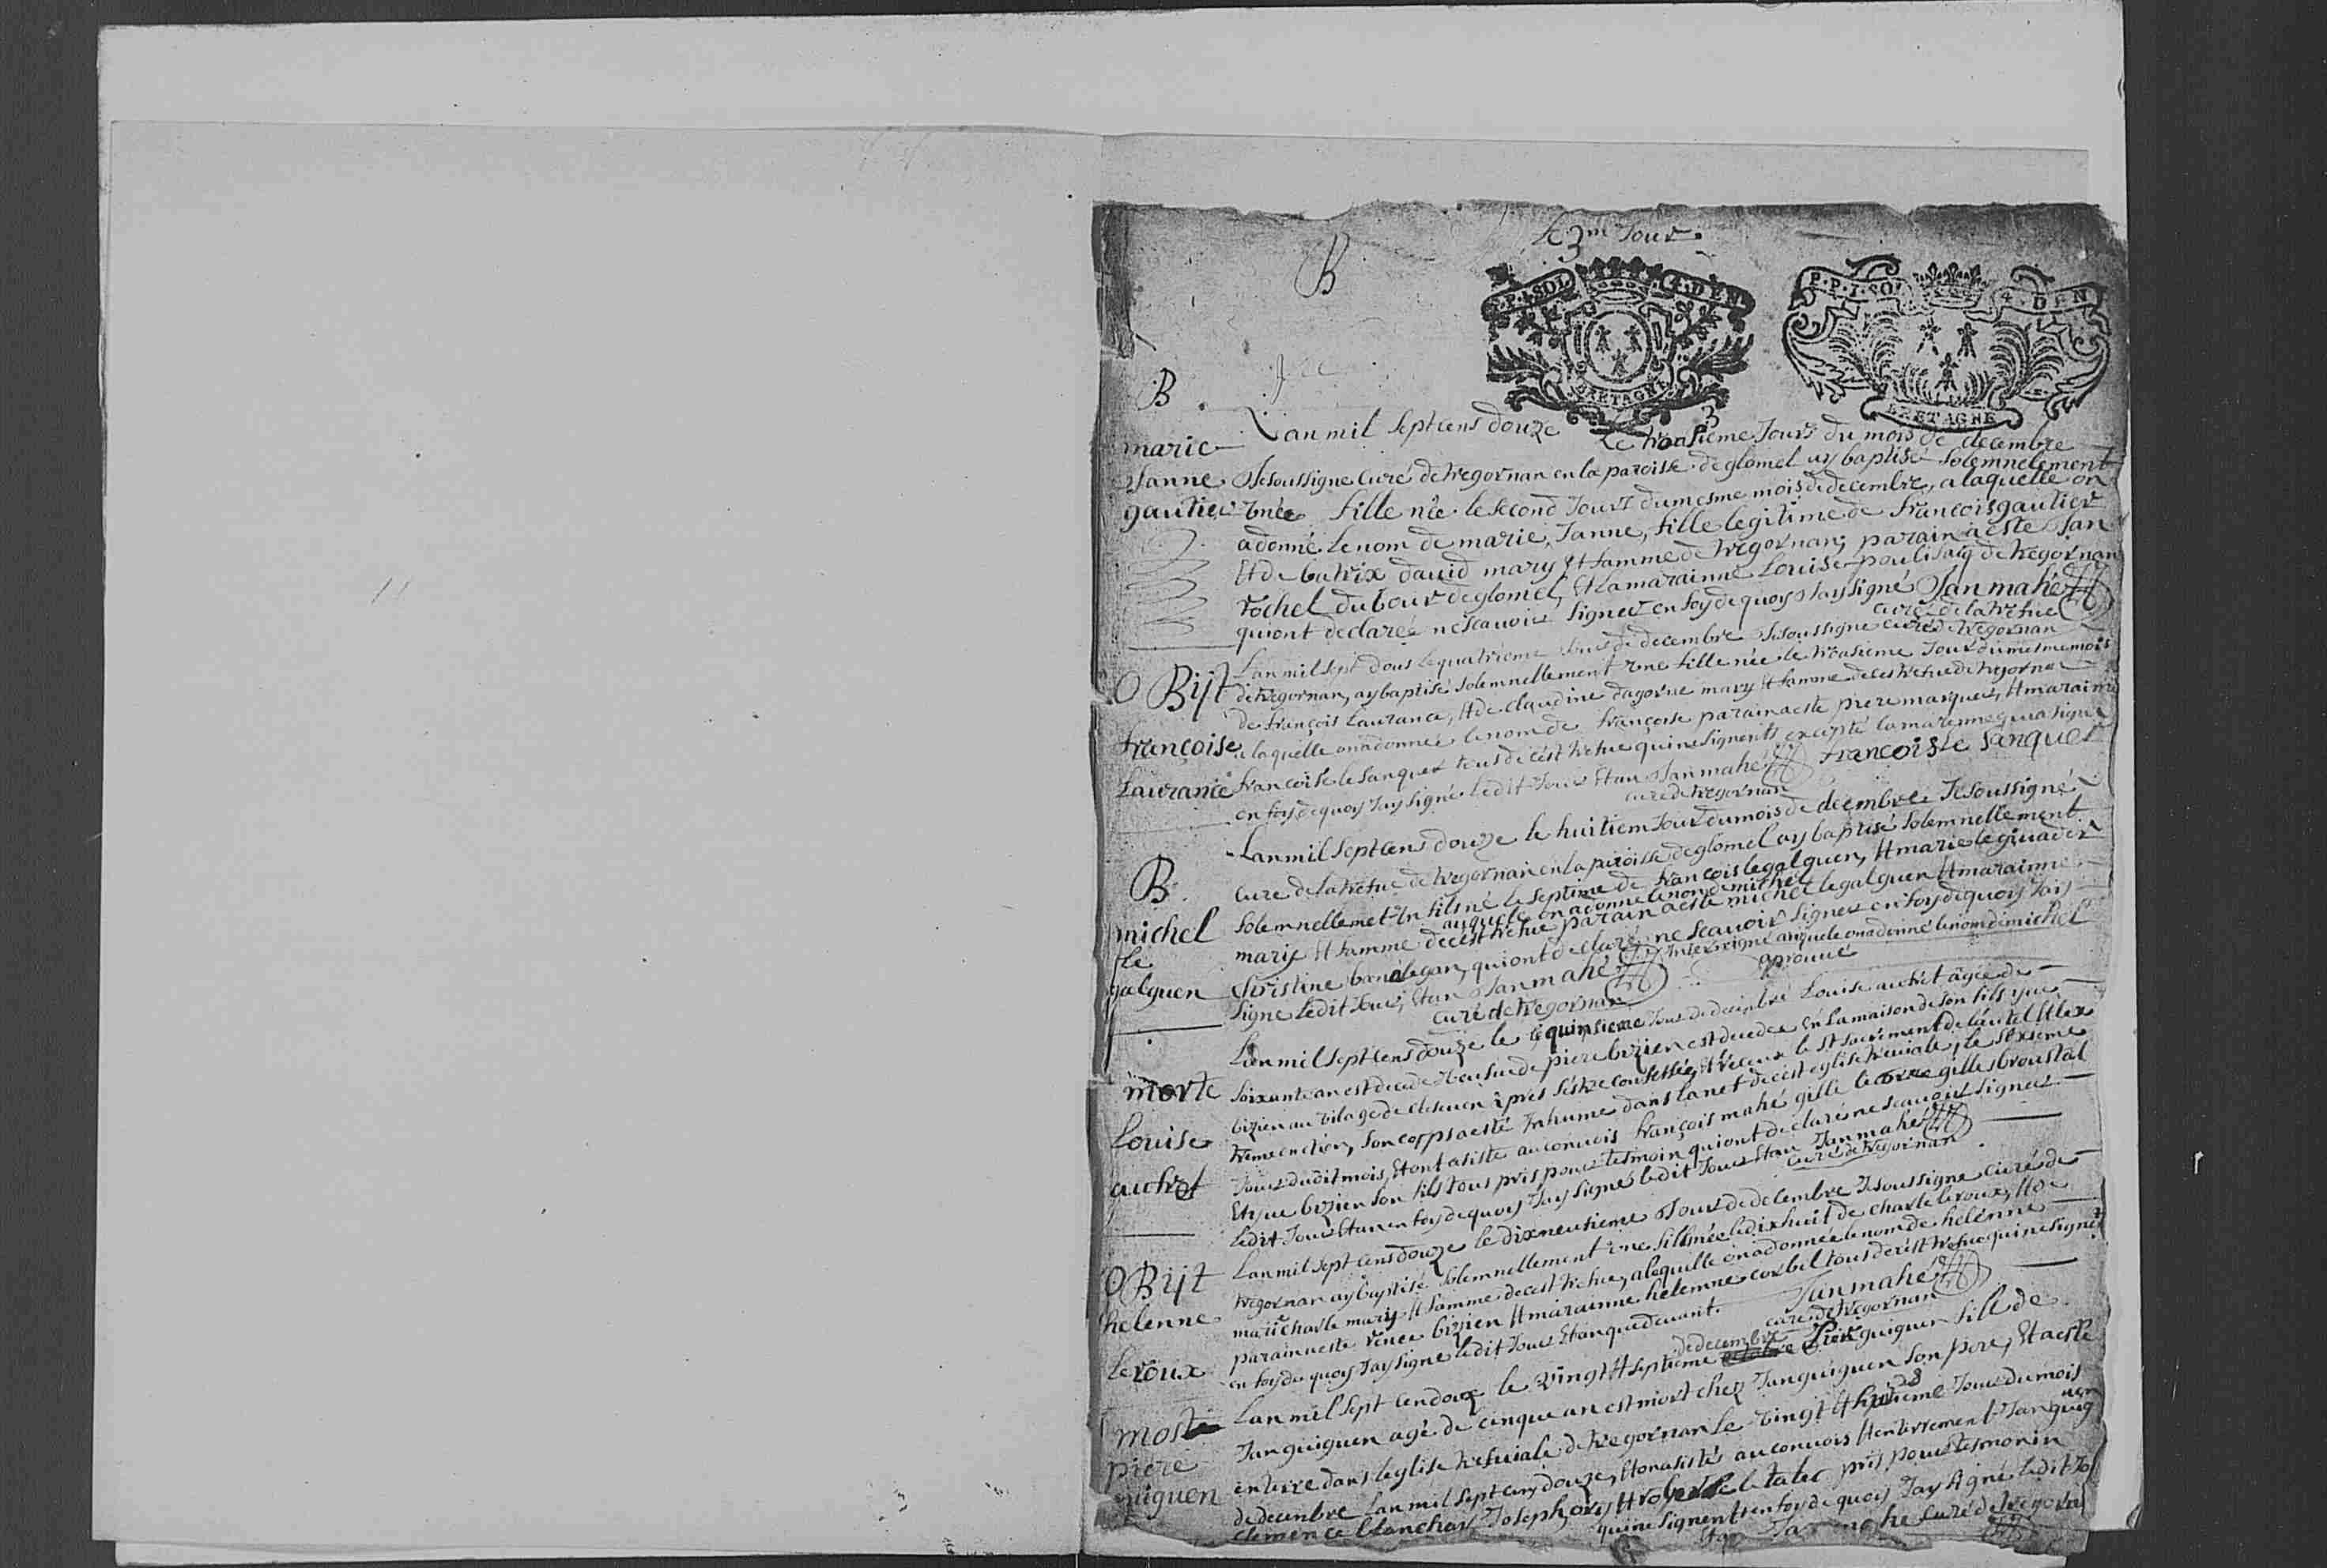 Le 3m Jour
B
P.P.1.SOL 4.DEN
BRETAGNE
P.P.1.SOL 4.DEN
BRETAGNE
3
B
marie
Janne
gautier
Lan mil sept cens douze Le troasieme Jour du mois de decembre
Je soussigne Curé de tregornan en la paroisse de glomel ay baptisé solemnelement
une fille née le second Jour du mesme mois de decembre, a laquelle on
a donné le nom de marie Janne, fille legitime de francois gautier
Et de batrix david mary Et famme de tregornan; parain a este Jan
rochel du bour de glomel, Et la marainne Louise poulisaig de tregornan
qui ont declaré ne scauoir signer en foy de quoy Jay signé Jan mahé
curé de la trefue
de tregornan
O Bijt
françoise
Laurance
Lan mil sept dous le quatrieme Jour de decembre Je soussigne curé
de tregornan, ay baptisé solemnellement une fille née le troasieme Jour du mesme mois
de françois Laurance, Et de claudine dagorne mary Et famme de cest trefue de tregornan
a laquelle on a donneé le nom de françoise parain a este piere marquer, Et marainne
francoise le Janquer tous de cest trefue qui ne signents excepté la marenne qui a signé
en foy de quoy Jay signé le dit Jour Et an Jan mahé françoise le Janquer
curé de tregornan
B
michel
le
galguen
Lan mil sept cens douze le huitiem Jour du mois de decembre Je soussigné
Cure de la trefue de tregornan en la paroisse de glomel ay baptisé solemnellement
solemnellemet un fils né le septime de francois le galguen, Et marie le guader
auquele on a donne le nom de michel
mary Et famme de cest trefue parain a este michel le galguen Et marainne
Christine banalegan, qui ont declaré ne scauoir signer en foy de quoy Jay
signe le dit Jour, Et an Jan mahé Interligne auquele on a donné le nom de michel
curé de tregornan aprouué
morte
Louise
aufret
Lan mil sept cens douze le quinsieme Jour de decembre Louise aufret agée de
soixante an est decede veufue de piere bizien est decedee en la maison de son fils yue
bizien au vilage de apres sestre confessée, Et receue le st sacrement de lautel Et lex
treme onction, son corps a esté Inhume dans la net de cest eglise treuiale, le sexieme
Jour du dit mois, Et ont asiste au conuois françois mahé gille le gilles broustal
Et yue bizien son fils tous pris pour tesmoin qui ont declaré ne scauoir signer
le dit Jour Et an en foy de quoy Jay signé le dit Jour Et an Jan mahé
curé de tregornan
O Bijt
helenne
le roux
Lan mil sept cens douze le dixneufieme Jour de decembre Je soussigne curé de
tregornan ay baptisé solemnellement une fille née le dixhuit de charle le roux, Et de
marie charle mary Et famme de cest trefue, a laquelle on a donnée le nom de helenne
parain a este renee bizien Et marainne helenne corbel tous de cest trefue qui ne signet
en foy de quoy Jay signe le dit Jour Et an que deuant. Jan mahé
curé de tregornan
mort
piere
guiguen
de decembre
Lan mil sept cen douze le vingt Et septieme piere guiguen fill de
Jan guiguen agé de cinque an est mort chez Jan guiguen son pere, Et a este
28
enterre dans leglise trefuiale de tregornan le vingt Et huitieme Jour du mois
de decenbre Lan mil sept cens douze, Et on asistés au conuois Et enterrement Jan guiguen
Clemence blanchar Joseph Et le talec pris pour tesmonin
qui ne signent en foy de quoy Jay signé le dit Jo
Et an Jan mahe Curé de tregornan